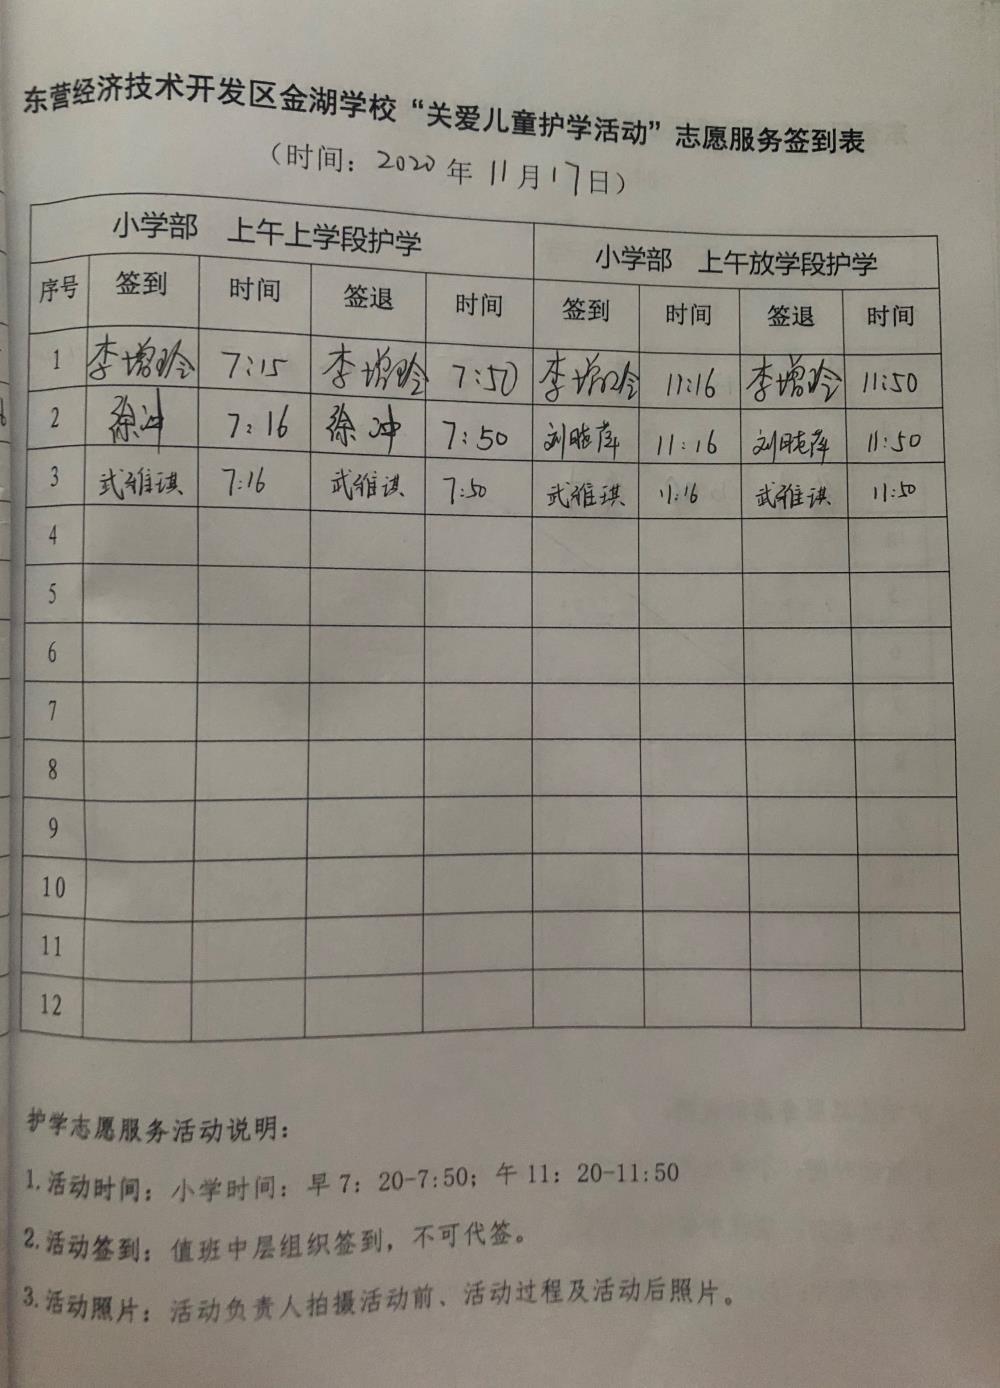 东营经济技术开发区金湖学校“关爱儿童护学活动”志愿服务签到表
（时间：2020年11月17日）
小学部 上午上学段护学 小学部 上午放学段护学
序号 签到 时间 签退 时间 签到 时间 签退 时间
1 李增玲 7:15 李增玲 7:50 李增玲 11:16 李增玲 11:50
2 徐冲 7:16 徐冲 7:50 刘晓萍 11:16 刘晓萍 11:50
3 武雅琪 7:16 武雅琪 7:50 武雅琪 11:16 武雅琪 11:50
4
5
6
7
8
9
10
11
12
护学志愿服务活动说明：
1.活动时间：小学时间：早7：20-7:50；午11：20-11:50
2.活动签到：值班中层组织签到，不可代签。
3.活动照片：活动负责人拍摄活动前、活动过程及活动后照片。